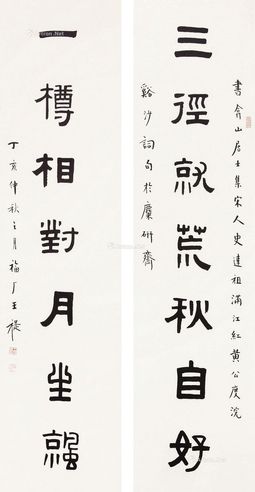 書弇山居士集宋人史達祖滿江紅黃公度浣
三徑就荒秋自好
谿沙詞句於麋研齋
一樽相對月
丁亥仲秋之月福厂王禔